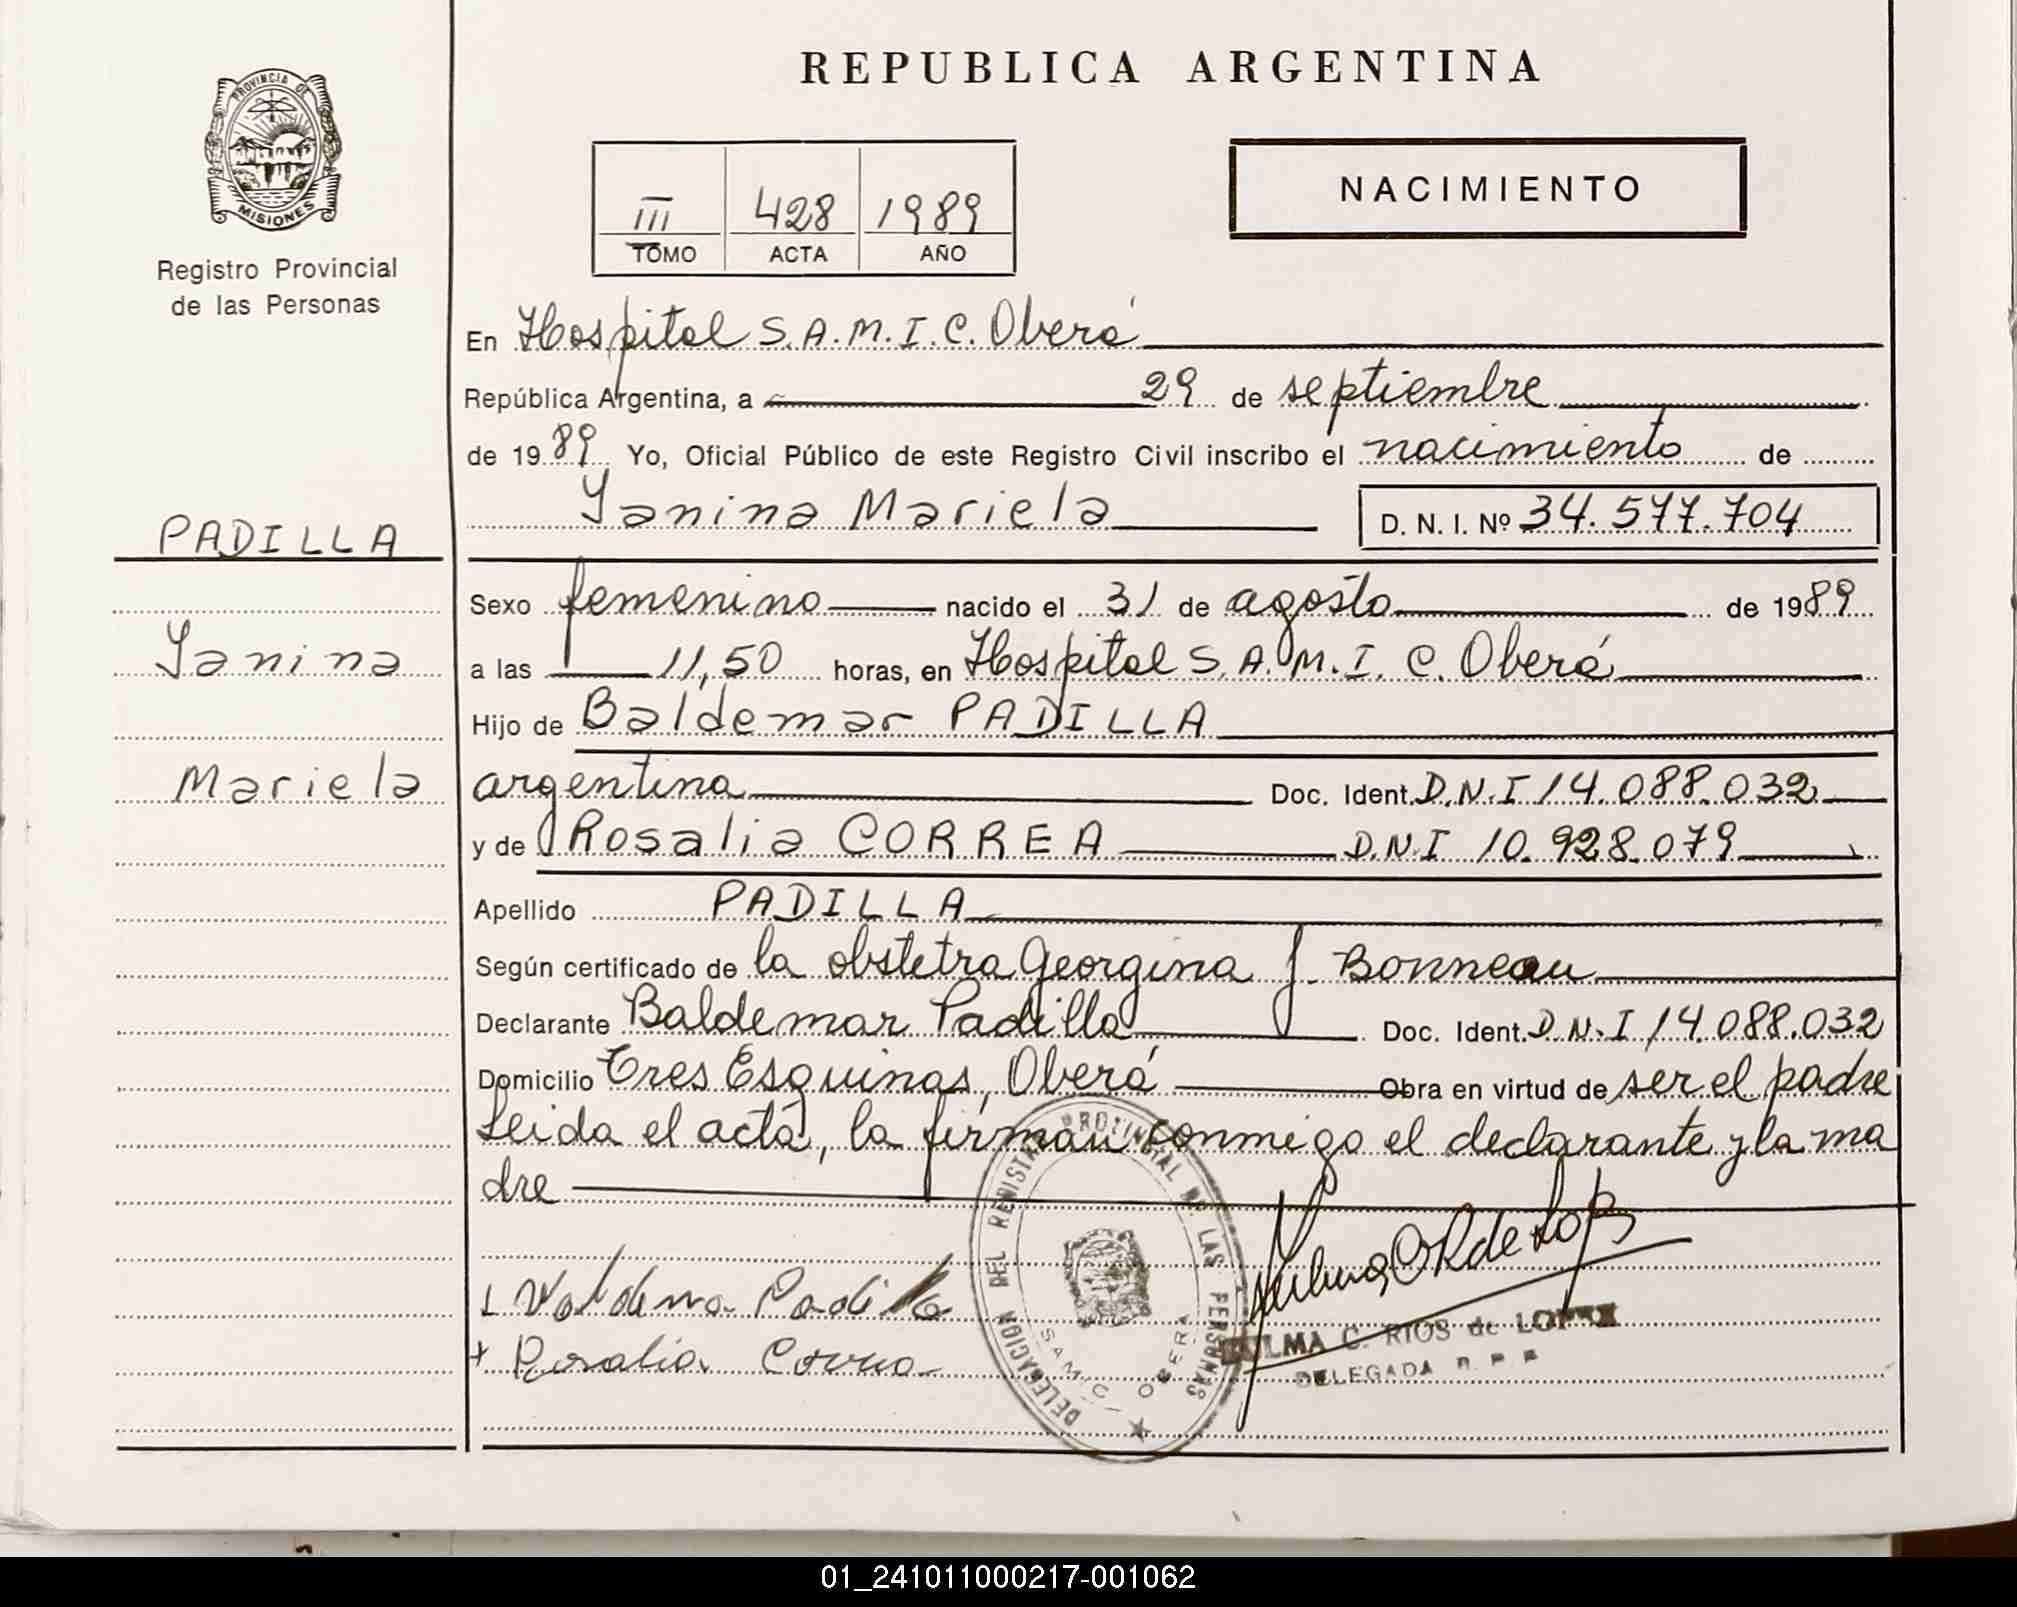 REPUBLICA ARGENTINA
PROVINCIA DE MISIONES
Registro Provincial
de las Personas
III 428 1989
TOMO ACTA AÑO
NACIMIENTO
En Hospital S.A.M.I.C. Oberá
República Argentina, a 29 de septiembre
de 1989 Yo, Oficial Público de este Registro Civil inscribo el nacimiento de
Yanina Mariela D. N. I. Nº 34.577.704
PADILLA
Yanina
Mariela
Sexo femenino nacido el 31 de agosto de 1989
a las 11,50 horas, en Hospital S.A.M.I.C. Oberá
Hijo de Baldemar PADILLA
argentina Doc. Ident. D.N.I 14.088.032
y de Rosalia CORREA D.N.I 10.928.079
Apellido PADILLA
Según certificado de la obstetra Georgina J. Bonneau
Declarante Baldemar Padilla Doc. Ident. D.N.I 14.088.032
Domicilio Tres Esquinas, Oberá Obra en virtud de ser el padre
Leida el acta, la firman conmigo el declarante y la ma
dre
Padilla
Rosalia Correa
DELEGACION DEL REGISTRO PROVINCIAL DE LAS PERSONAS
SAMIC OBERA
ZULMA C. RIOS de LOPEZ
DELEGADA R. P. P.
01_241011000217-001062